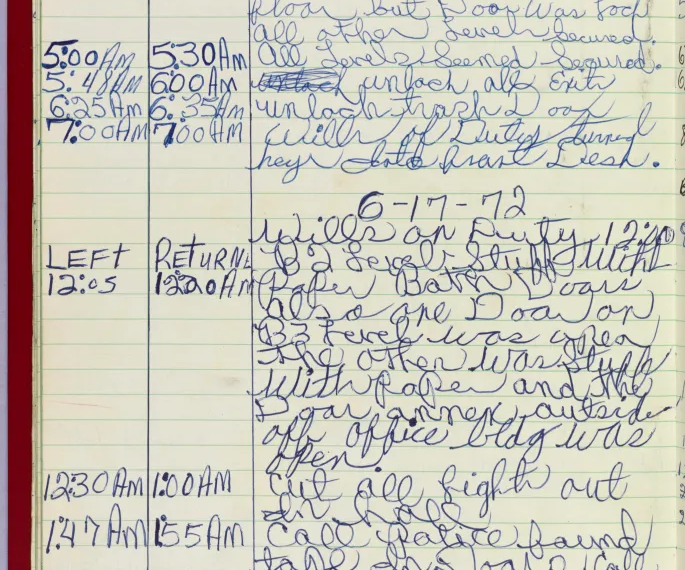 floor but Door was Loc
all other Level Secured
5:00Am 5:30Am All Levels Seemed Secured.
5:48Am 600Am unlock all Exits
6:25Am 6:35Am unlock trash Door
7:00AM 700AM Wills of Duty turned
keys into Front Desk.
6-17-72
Wills on Duty 12:
LEFT RETURN B2 Level Stuff With
12:05 1220Am Paper Both Doors
also one Door on
B3 Level was open
the other was Stuff
With Paper and the
Door annex outside
off office bldg was
open.
1230AM 1:00AM Cut all light out
In hall
1:47AM 155AM Call Police found
tape